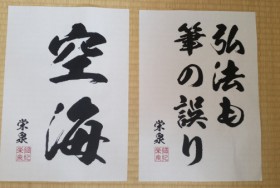 弘法も
筆の誤り
栄泉
空海
栄泉